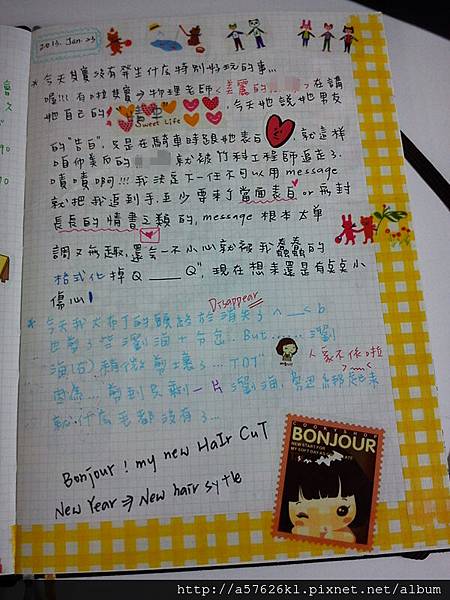 2013. Jan. 23
* 今天其實沒有發生什麼特別好玩的事...
喔!!! 有啦 其實 → 物理老師 <美麗的 > 在講
她自己的 "情事"
Sweet Life
今天她說她男友
的 "告白" 只是在騎車時跟她表白 就這樣
咱們美眉的 就被竹科工程師追走了.
嘖嘖啊!!! 我決定下一任不可以用message
就把我追到手, 至少要來個當面表白 or 兩封
長長的情書之類的, message 根本太單
調又無趣, 還會一不小心就被我蠢蠢的
格式化掉Q____Q", 現在想來還是有點點小
傷心!
Disappear
* 今天我大布丁的頭終於消失了 ^__< b
也剪了空瀏海+分岔.. But ...... 瀏
海(舌)稍微剪壞了... TOT"
人家不依啦
>~~<
因為... 剪到只剩一片瀏海, 旁邊綁起來
就什麼毛都沒有了...
Bonjour ! my new HaIr CuT
New Year ⇒ New hair sytle
BONJOUR
http://a57626kl.pixnet.net/album